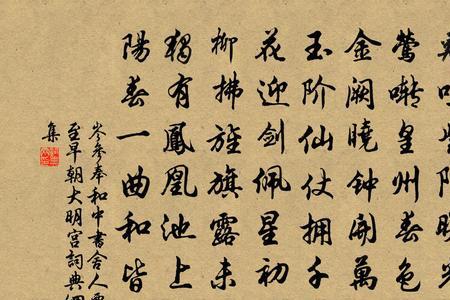 鶯啭皇州春色
金闕曉钟開萬
玉阶仙仗擁千
花迎劍佩星初
柳拂旌旗露未
獨有鳳凰池上
陽春一曲和皆
岑參奉和中書舍人
至早朝大明宮詞典網
集